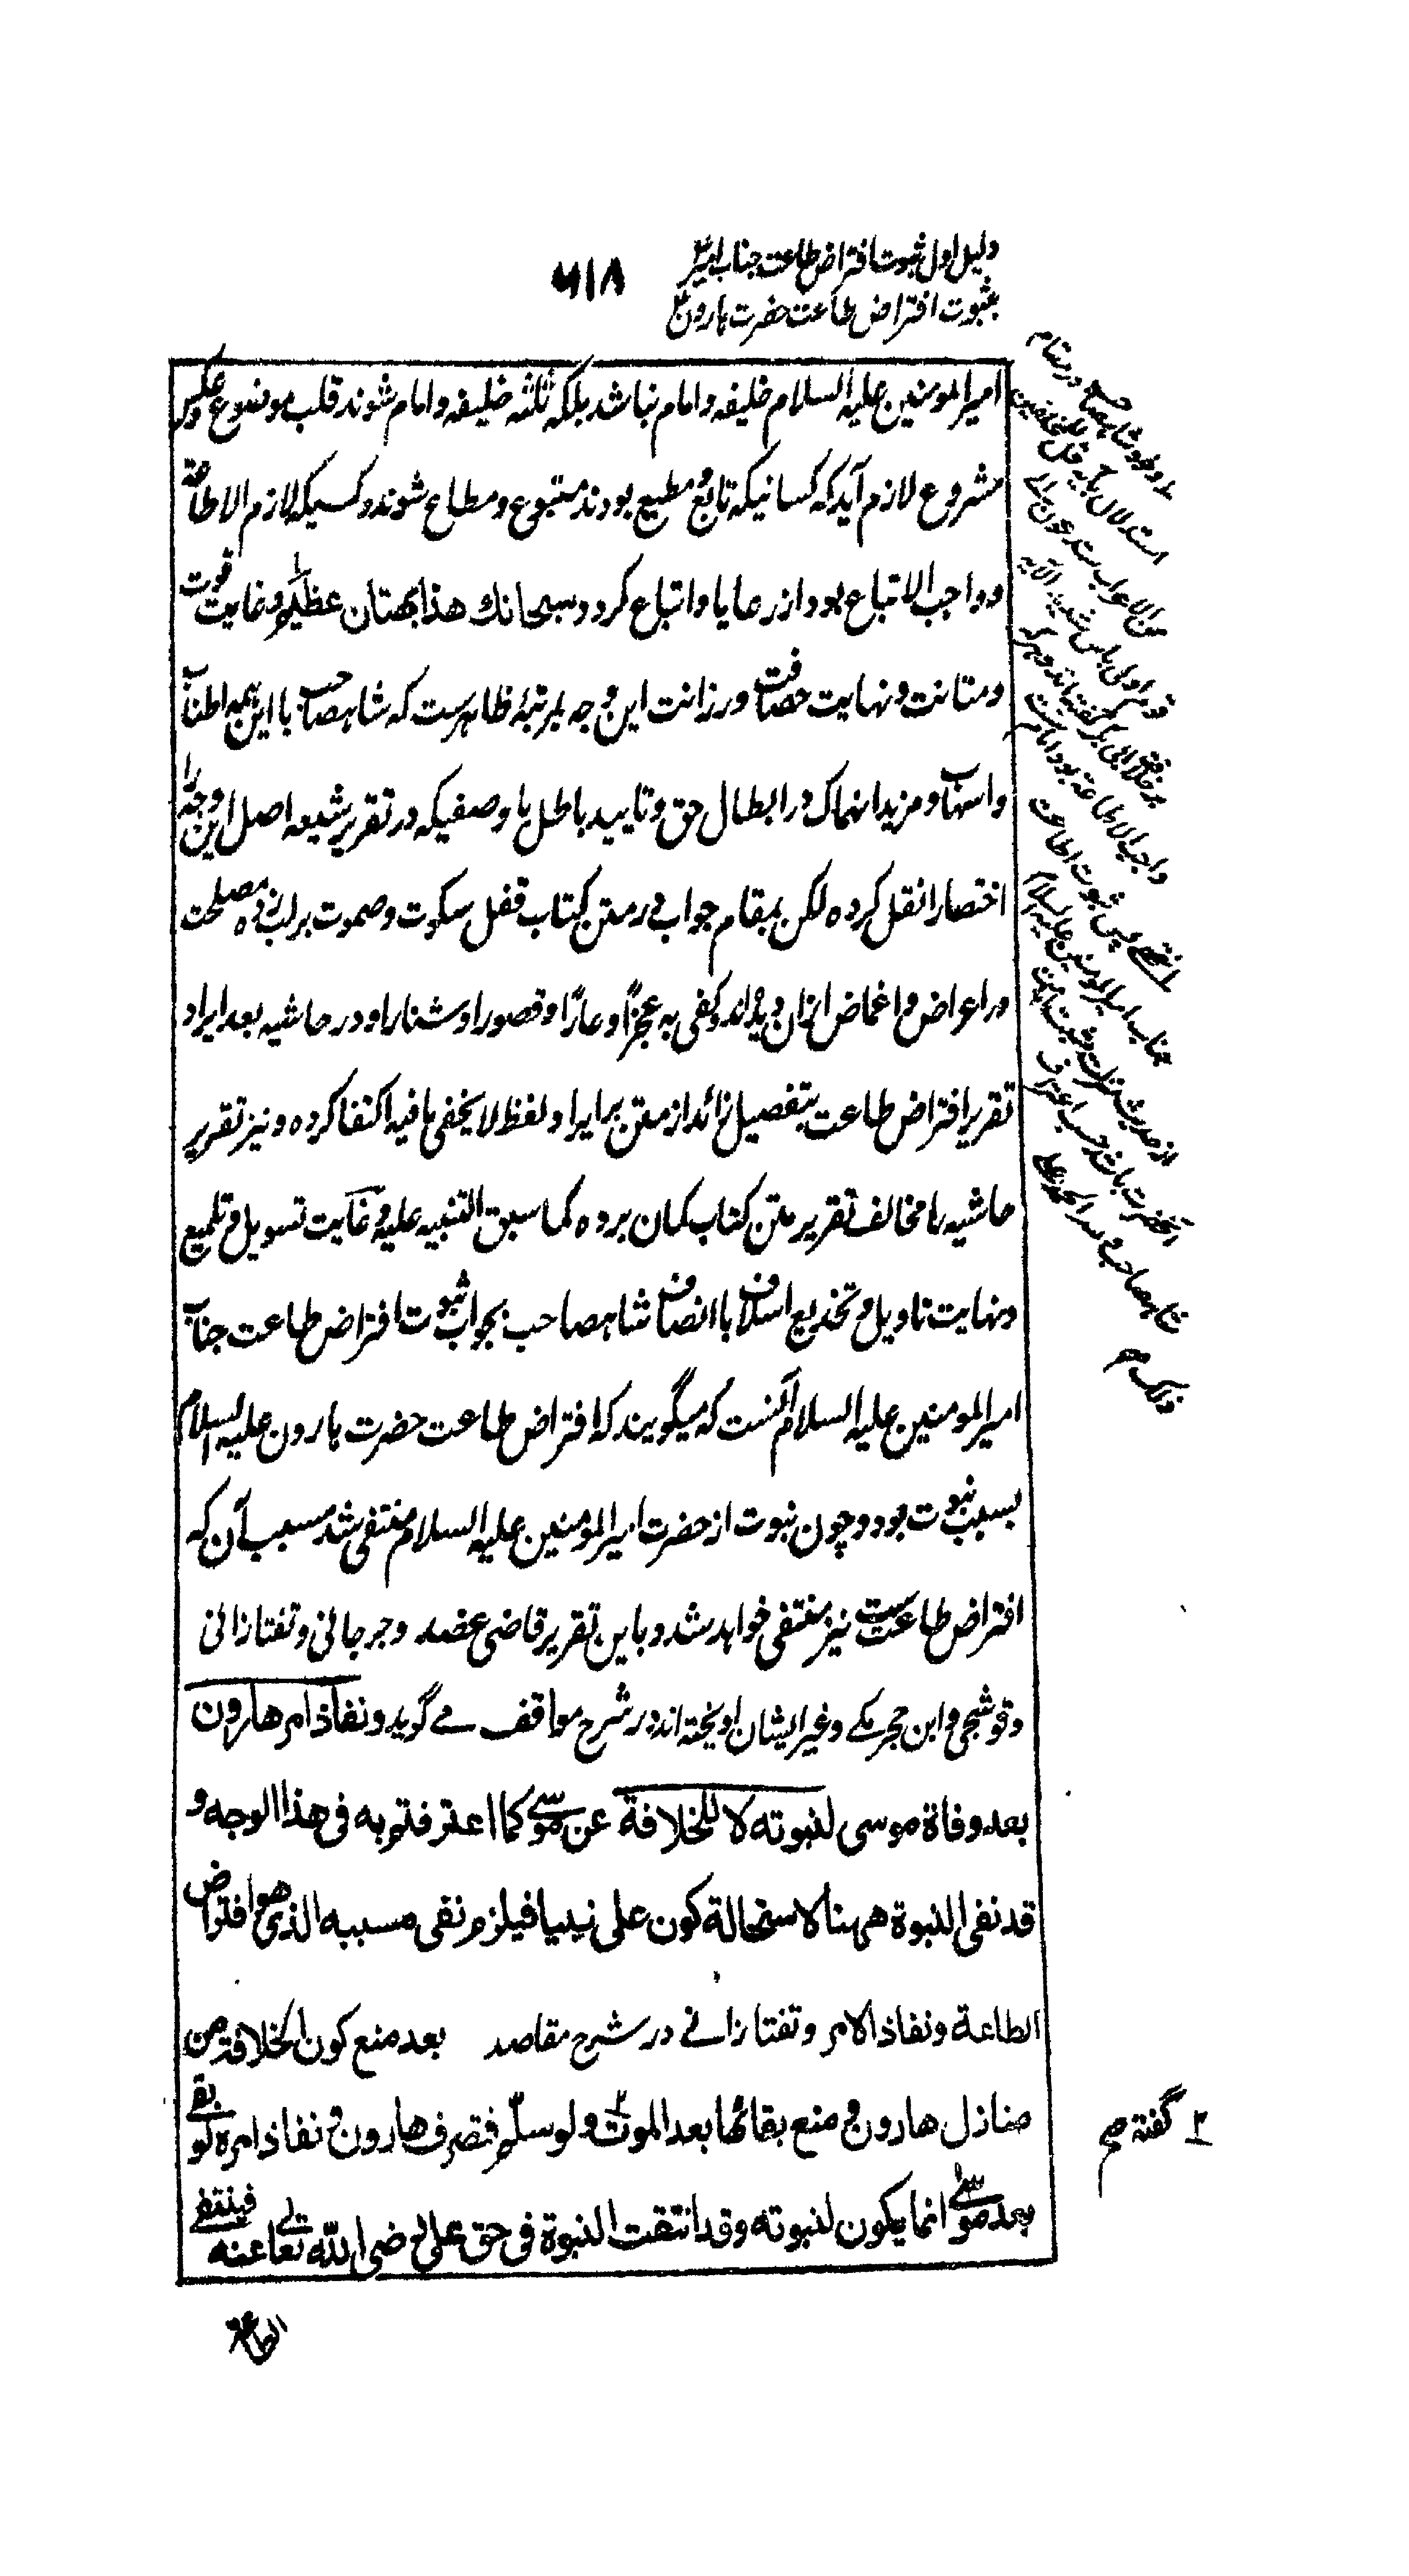 دلیل اول ثبوت افتراض طاعت جناب امیرؑ
بثبوت افتراض طاعت حضرت ہارونؑ
۶۱۸
امیرالمومنین علیہ السلام خلیفہ و امام نباشد بلکہ ثلثہ خلیفہ و امام شوند قلب موضوع و عکس
مشروع لازم آید کہ کسانیکہ تابع و مطیع بودند متبوع و مطاع شوند و کسیکہ لازم الاطاعۃ
و واجب الاتباع بود از رعایا و اتباع گردد سبحانك هذا بهتان عظیم و غایت قوت
و متانت و نہایت حصافت و رزانت این وجہ بمرتبۂ ظاہرست کہ شاہصاحب با این ہمہ اطناب
و اسہاب و مزید انہماک در ابطال حق و تایید باطل با وصفیکہ در تقریر شیعہ اصل این وجہ را
اختصارا نقل کردہ لکن بمقام جواب در متن کتاب قفل سکوت و صموت بر لب زدہ مصلحت
در اعراض و اغماض ازان دیدہ اند و کفی بہ عجزًا و عارًا و قصورا و شنارا و در حاشیہ بعد ایراد
تقریر افتراض طاعت بتفصیل زائد از متن بر ایراد لفظ لا یخفی ما فیہ اکتفا کردہ و نیز تقریر
حاشیہ را مخالف تقریر متن کتاب گمان بردہ کما سبق التنبیہ علیہ و غایت تسویل و تلمیع
و نہایت تاویل و تخدیع اسلاف با انصاف شاہصاحب بجواب ثبوت افتراض طاعت جناب
امیرالمومنین علیہ السلام آنست کہ میگویند کہ افتراض طاعت حضرت ہارون علیہ السلام
بسبب نبوت بود و چون نبوت از حضرت امیرالمومنین علیہ السلام منتفی شد مسبب آن کہ
افتراض طاعت ست نیز منتفی خواہد شد و باین تقریر قاضی عضد و جرجانی و تفتازانی
و قوشجی و ابن حجر مکے و غیر ایشان آویختہ اند در شرح مواقف مے گوید و نفاذ امر هارون
بعد وفاة موسی لنبوته لا للخلافة عن موسی کما اعترفتم به فی هذا الوجه و
قد نفی النبوة ههنا لاستحالة کون علی نبیا فیلزم نفی مسببه الذی هو افتراض
الطاعة و نفاذ الامر و تفتازانے در شرح مقاصد بعد منع کون الخلافة من
منازل هارون و منع بقائها بعد الموت ۲ و لو سلم فتصرف هارون و نفاذ امره لو بقی
بعد موسی انما یکون لنبوته وقد انتفت النبوة فی حق علی رضی الله تعالی عنه فینتفی
الطاعة
۲ گفتہ صح
شاہصاحب در مقام
استدلال بآیہ قل للمخلفین
من الاعراب ستدعون الی
قوم اولی باس شدید الآیہ
بر خلافت ابی بکر گفتہ اند و ہر کہ
واجب الاطاعۃ بود امام ست
انتهی پس ثبوت اطاعت
جناب امیرالمومنین علیہ السلام
از حدیث منزلت مثبت امامت
آنحضرت باشد حسب اعتراف
شاہصاحب و لله الحمد علی
ذلک صح